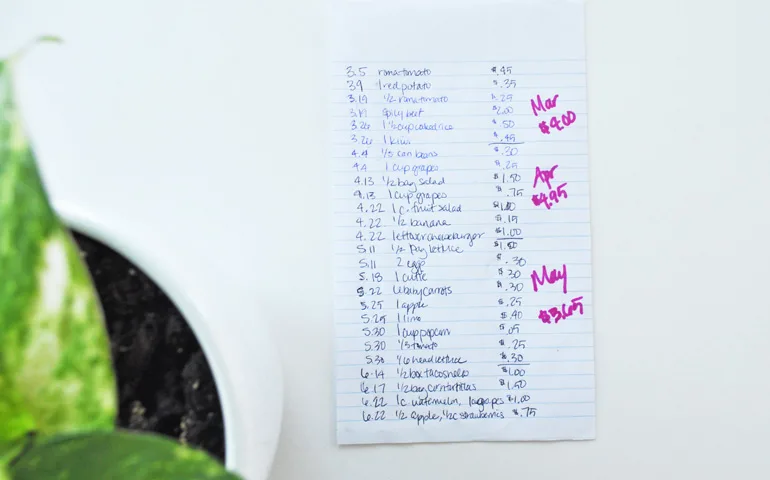 3.5 roma tomato $.45
3.9 1 red potato $.35
3.19 1/2 roma tomato $.25
3.19 spicy beet $2.00
3.26 1/3 cup cooked rice $.50
3.26 1 kiwi $.45
Mar $4.00
4.4 1/3 can beans $.30
4.4 1 cup grapes $.25
4.13 1/2 bag salad $1.50
4.13 1 cup grapes $.75
4.22 1 c. fruit salad
4.22 1/2 banana $.15
4.22 leftover cheeseburger $1.00
Apr $4.95
5.11 1/2 lettuce $1.50
5.11 2 eggs $.30
5.18 1 cutie $.30
5.22 6 baby carrots $.30
5.25 1 apple $.25
5.25 1 lime $.40
5.30 1 cup popcorn $.05
5.30 1/3 tomato $.25
5.30 1/6 head lettuce $.30
May $3.65
6.14 1/2 box taco shells $1.00
6.17 1/2 bag corn tortillas $1.50
6.22 1c. watermelon, grapes $1.00
6.22 1/2 apple, 1/2c strawberries $.75